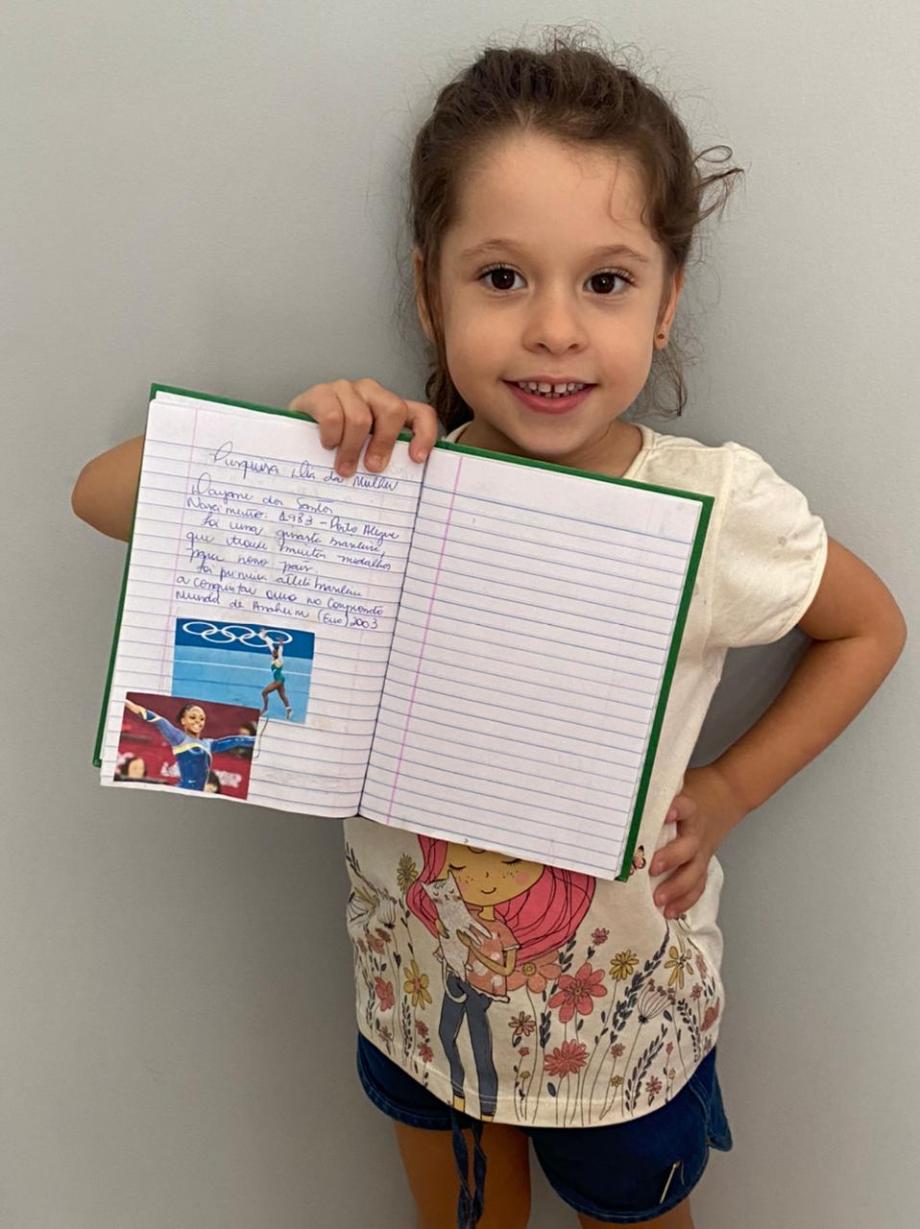 Pesquisa Dia da Mulher
Dayane dos Santos
Nascimento: 1983 - Porto Alegre
foi uma ginasta brasileira,
que trouxe muitas medalhas
para nosso país.
foi primeira atleta brasileira
a conquistar ouro no Campeonato
Mundial de Anaheim (Eua) 2003